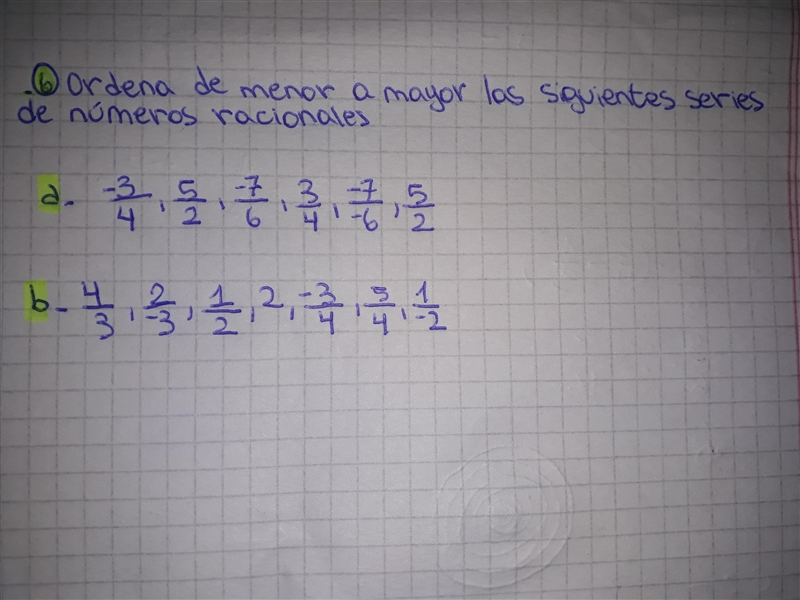 .6 Ordena de menor a mayor las siguientes series
de números racionales
a. -3/4, 5/2, -7/6, 3/4, -7/-6, 5/2
b- 4/3, 2/-3, 1/2, 2, -3/4, 5/4, 1/-2